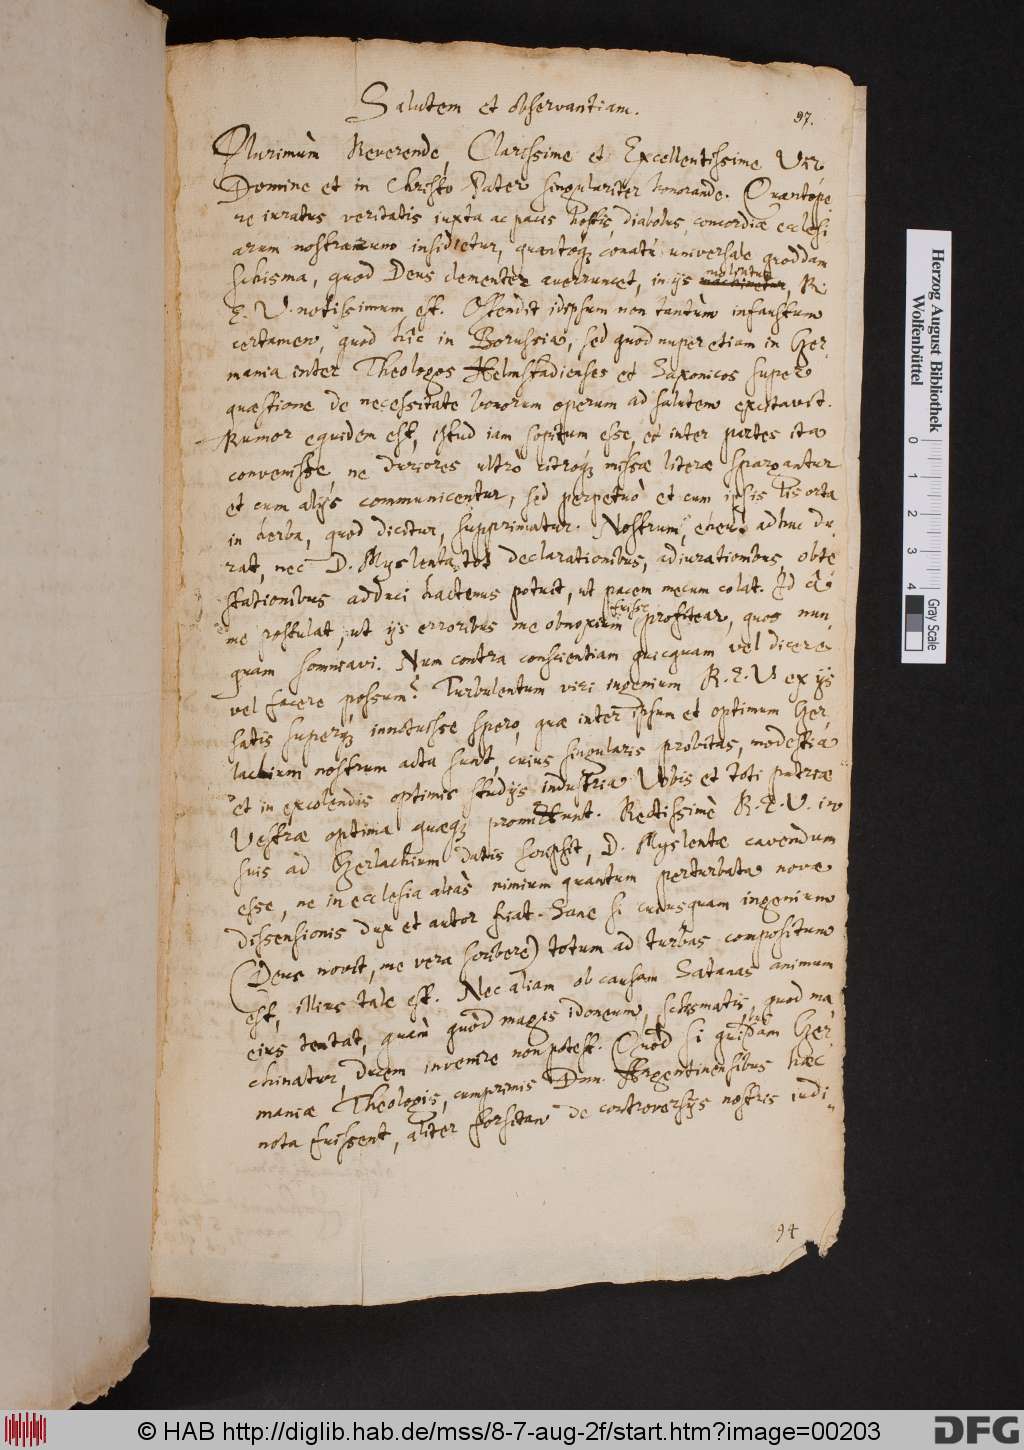 Salutem et observantiam.
97.
Plurimùm Reverende, Clarissime et Excellentissime Vir
Domine et in Christo Pater singulariter honorande. Quantope
re iuratus veritatis iuxta ac pacis hostis, diabolus, concordiæ ecclesi
arum nostrarum insidietur, quantoq; conatu universale quoddam
schisma, quod Deus clementer averruncet, in ijs machinetur, R.
molintur
E. V. notissimum est. Ostendit id ipsum non tantùm infaustum
certamen, quod hîc in Borussia, sed quod nuper etiam in Ger,
mania inter Theologos Helmstadienses et Saxonicos super
quæstione de necessitate bonorum operum ad salutem excitavit.
Rumor equidem est, istud iam sopitum esse, et inter partes ita
convenisse, ne duriores ultrò citroq; missæ literæ spargantur
et cum alijs communicentur, sed perpetuò et cum ipsis lis orta
in herba, quod dicitur, supprimatur. Nostrum, eheu! adhuc du,
rat, nec D. Myslenta tot declarationibus, adiurationibus, obte
stationibus adduci hactenus potuit, ut pacem mecum colat. Id à
me postulat, ut ijs erroribus me obnoxium profitear, quos nun,
fuisse
quam somniavi. Num contra conscientiam quicquam vel dicere
vel facere possum? Turbulentum viri ingenium R. E. V ex ijs
satis superq; innotuisse spero, quæ inter ipsum et optimum Ger,
lachium nostrum acta sunt, cuius singularis probitas, modestia
et in excolendis optimis studijs industria Urbis et toti patriæ
Vestræ optima quæq; promittunt. Rectissimè R. E. V. in
suis ad Gerlachium datis scripsit, D. Myslentæ cavendum
esse, ne in ecclesia aliàs nimium quantum perturbata novæ
dissensionis dux et autor fiat. Sane si cuiusquam ingenium
(Deus novit, me vera scribere) totum ad turbas compositum
est, illius tale est. Nec aliam ob causam Satanas animum
eius tentat, quàm quòd magis idoneum, schismatis, quod ma
chinatur, ducem invenire non potest. Quòd si quibusdam Ger,
maniæ Theologis, cumprimis Dnn. Argentinensibus hæc
nota fuissent, aliter forsitan de controversijs nostris iudi,,
94
Herzog August Bibliothek
Wolfenbüttel
0 1 2 3 4
Gray Scale
© HAB http://diglib.hab.de/mss/8-7-aug-2f/start.htm?image=00203
DFG